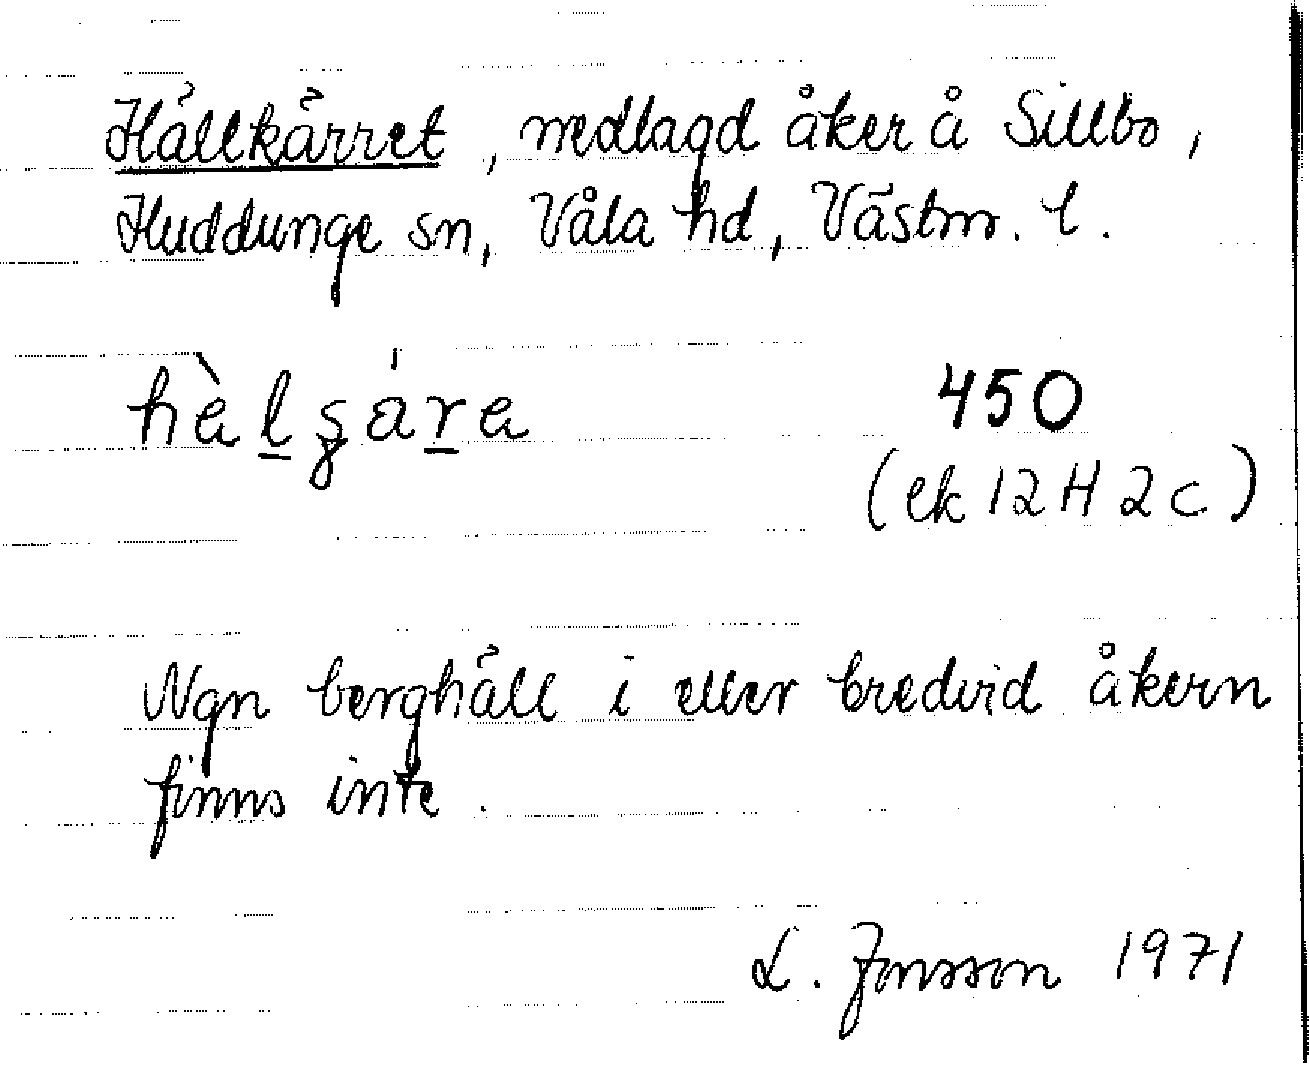 Hällkärret, nedlagd åker å Sillbo,
Huddunge sn, Våla hd, Västm. l.
450
(ek 12H 2c)
Ngn berghäll i eller bredvid åkern
finns inte.
L. Jonsson 1971